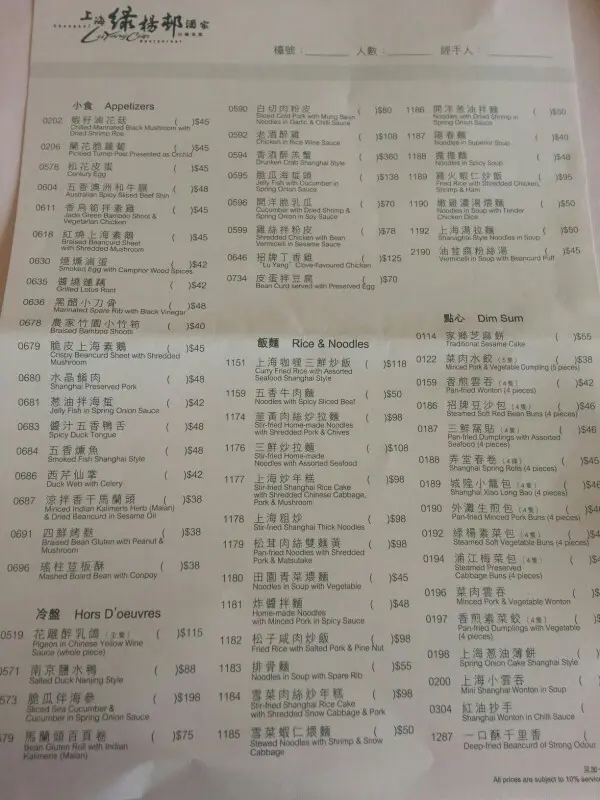 上海綠楊邨酒家
Shanghai Lu Yang Cun Restaurant
檯號：
人數：
經手人：
小食 Appetizers
0202 蝦籽滷花菇 ( )$45
Chilled Marinated Black Mushroom with
Dried Shrimp Roe
0206 蘭花脆蘿蔔 ( )$45
Pickled Turnip Peel Presented as Orchid
0578 松花皮蛋 ( )$45
Century Egg
0604 五香澳洲和牛腱 ( )$48
Australian Spicy Sliced Beef Shin
0611 香烏筍拌素雞 ( )$45
Jade Green Bamboo Shoot &
Vegetarian Chicken
0618 紅燒上海素鵝 ( )$45
Braised Beancurd Sheet
with Shredded Mushroom
0630 煙燻滷蛋 ( )$42
Smoked Egg with Camphor Wood Spices
0635 醬燒蓮藕 ( )$42
Grilled Lotus Root
0636 黑醋小刀骨 ( )$48
Marinated Spare Rib with Black Vinegar
0678 農家竹園小竹筍 ( )$40
Braised Bamboo Shoots
0679 脆皮上海素鵝 ( )$45
Crispy Beancurd Sheet with Shredded
Mushroom
0680 水晶餚肉 ( )$48
Shanghai Preserved Pork
0681 葱油拌海蜇 ( )$42
Jelly Fish in Spring Onion Sauce
0683 醬汁五香鴨舌 ( )$48
Spicy Duck Tongue
0684 五香燻魚 ( )$48
Smoked Fish Shanghai Style
0686 西芹仙掌 ( )$42
Duck Web with Celery
0687 涼拌香干馬蘭頭 ( )$38
Minced Indian Kalimeris Herb (Malan)
& Dried Beancurd in Sesame Oil
0691 四鮮烤麩 ( )$38
Braised Bean Gluten with Peanut &
Mushroom
0696 瑤柱荳板酥 ( )$38
Mashed Board Bean with Conpoy
冷盤 Hors D'oeuvres
0519 花雕醉乳鴿 (全隻) ( )$115
Pigeon in Chinese Yellow Wine
Sauce (whole piece)
0571 南京鹽水鴨 ( )$88
Salted Duck Nanjing Style
573 脆瓜伴海參 ( )$198
Sliced Sea Cucumber &
Cucumber in Spring Onion Sauce
579 馬蘭頭百頁卷 ( )$75
Bean Gluten Roll with Indian
Kalimeris (Malan)
0590 白切肉粉皮 ( )$80
Sliced Cold Pork with Mung Bean
Noodles in Garlic & Chilli Sauce
0592 老酒醉雞 ( )$108
Chicken in Rice Wine Sauce
0594 香酒醉羔蟹 ( )$360
Drunken Crab Shanghai Style
0595 脆瓜海蜇頭 ( )$138
Jelly Fish with Cucumber in
Spring Onion Sauce
0596 開洋脆乳瓜 ( )$70
Cucumber with Dried Shrimp &
Spring Onion in Soy Sauce
0599 雞絲拌粉皮 ( )$78
Shredded Chicken with Bean
Vermicelli in Sesame Sauce
0646 招牌丁香雞 ( )$125
"Lu Yang" Clove-flavoured Chicken
0734 皮蛋拌豆腐 ( )$70
Bean Curd served with Preserved Egg
飯麵 Rice & Noodles
1151 上海咖喱三鮮炒飯 ( )$118
Curry Fried Rice with Assorted
Seafood Shanghai Style
1159 五香牛肉麵 ( )$50
Noodles with Spicy Sliced Beef
1174 韮黃肉絲炒拉麵 ( )$98
Stir-fried Home-made Noodles
with Shredded Pork & Chives
1176 三鮮炒拉麵 ( )$108
Stir-fried Home-made
Noodles with Assorted Seafood
1177 上海炒年糕 ( )$98
Stir-fried Shanghai Rice Cake
with Shredded Chinese Cabbage,
Pork & Mushroom
1178 上海粗炒 ( )$98
Stir-fried Shanghai Thick Noodles
1179 松茸肉絲雙麵黃 ( )$98
Pan-fried Noodles with Shredded
Pork & Matsutake
1180 田園青菜煨麵 ( )$45
Noodles in Soup with Vegetable
1181 炸醬拌麵 ( )$48
Home-made Noodles
with Minced Pork in Spicy Sauce
1182 松子咸肉炒飯 ( )$98
Fried Rice with Salted Pork & Pine Nut
1183 排骨麵 ( )$55
Noodles in Soup with Spare Rib
1184 雪菜肉絲炒年糕 ( )$98
Stir-fried Shanghai Rice Cake
with Shredded Snow Cabbage & Pork
1185 雪菜蝦仁煨麵 ( )$50
Stewed Noodles with Shrimp & Snow
Cabbage
1186 開洋葱油拌麵 ( )$50
Noodles with Dried Shrimp in
Spring Onion Sauce
1187 陽春麵 ( )$40
Noodles in Superior Soup
1188 擔擔麵 ( )$48
Noodles in Spicy Soup
1189 雞火蝦仁炒飯 ( )$95
Fried Rice with Shredded Chicken,
Shrimp & Ham
1190 嫩雞濃湯煨麵 ( )$50
Noodles in Soup with Tender
Chicken Dice
1192 上海滷拉麵 ( )$50
Shanghai Style Noodles in Soup
2190 油荳腐粉絲湯 ( )$45
Vermicelli in Soup with Beancurd Puff
點心 Dim Sum
0114 家鄉芝麻餅 ( )$55
Traditional Sesame Cake
0122 菜肉水餃 (5隻) ( )$38
Minced Pork & Vegetable Dumpling (5 pieces)
0159 香煎雲吞 (4隻) ( )$42
Pan-fried Wonton (4 pieces)
0186 招牌豆沙包 (4隻) ( )$46
Steamed Soft Red Bean Buns (4 pieces)
0187 三鮮窩貼 (4隻) ( )$46
Pan-fried Dumplings with Assorted
Seafood (4 pieces)
0188 弄堂春卷 (4條) ( )$45
Shanghai Spring Rolls (4 pieces)
0189 城隍小籠包 (4隻) ( )$46
Shanghai Xiao Long Bao (4 pieces)
0190 外灘生煎包 (4隻) ( )$46
Pan-fried Minced Pork Buns (4 pieces)
0192 綠楊素菜包 (4隻) ( )
Steamed Soft Vegetable Buns (4 pieces)
0194 浦江梅菜包 (4隻) ( )
Steamed Preserved
Cabbage Buns (4 pieces)
0196 菜肉雲吞 ( )
Minced Pork & Vegetable Wonton
0197 香煎素菜餃 (4隻) ( )
Pan-fried Dumplings with Vegetable
(4 pieces)
0198 上海葱油薄餅 ( )
Spring Onion Cake Shanghai Style
0200 上海小雲吞 ( )
Mini Shanghai Wonton in Soup
0304 紅油抄手 ( )
Shanghai Wonton in Chilli Sauce
1287 一口酥千里香 ( )
Deep-fried Beancurd of Strong Odour
另加
All prices are subject to 10% service